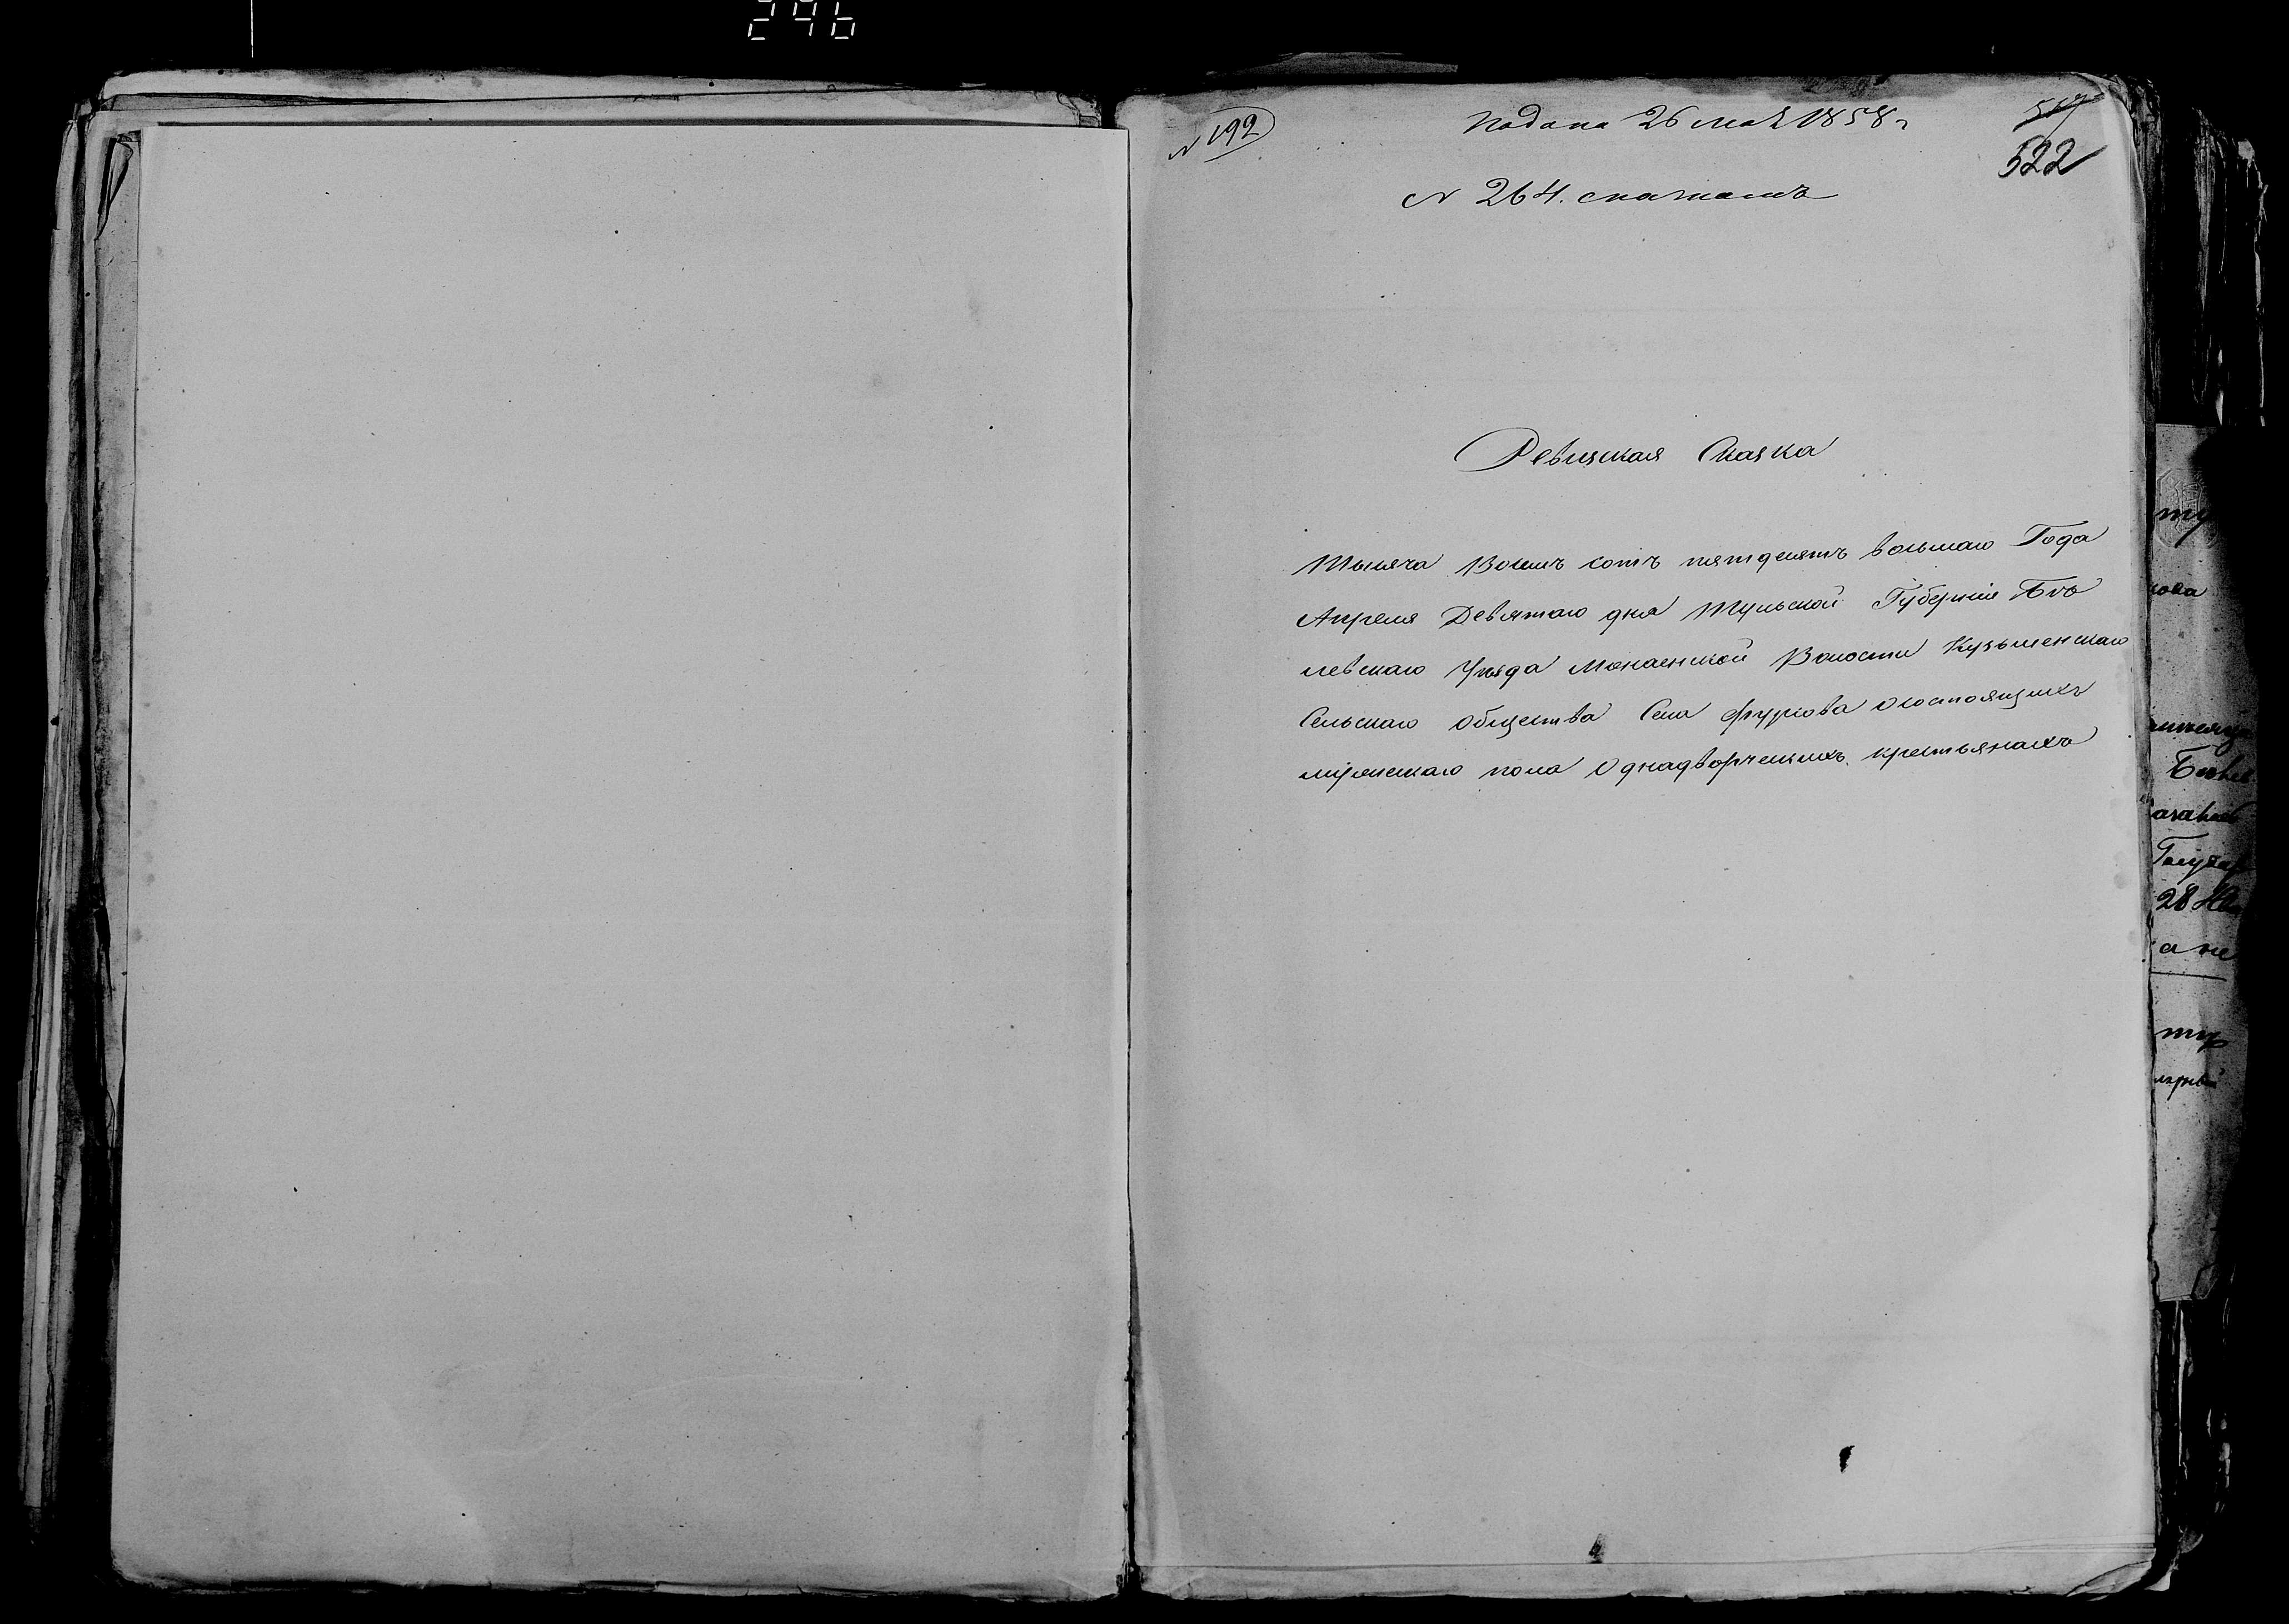 246
N 192
Подана 26 мая 1858 г
517
522
N 264.
Ревизская Сказка
Тысяча Восемь сотъ пятдесятъ восьмаго Года
Апреля Девятаго дня Тульской Губернии Бѣ
левскаго Уѣзда Монаенской Волости Кузьменскаго
Сельскаго общества Села Фурсова о состоящихъ
мужескаго пола Однадворческихъ крестьянахъ
28
а не